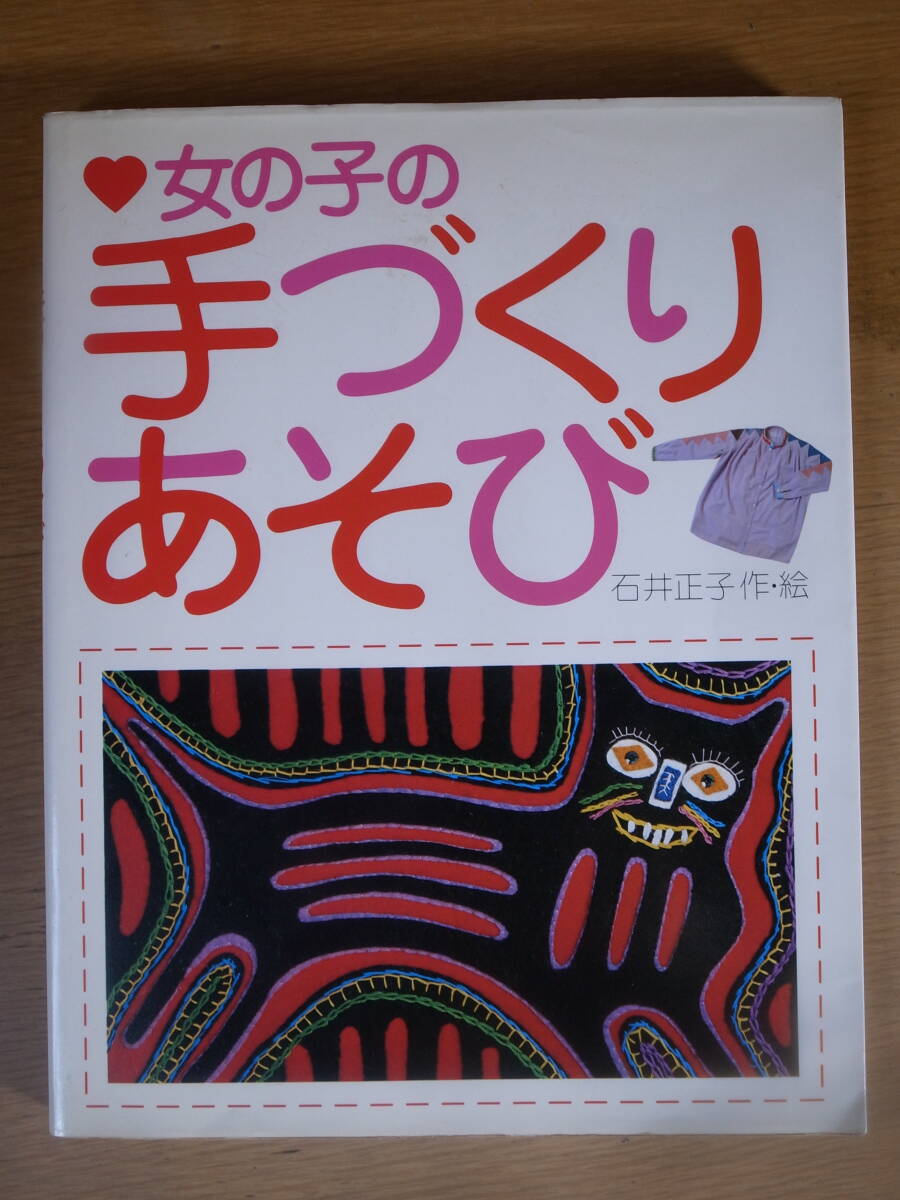 ♥女の子の
手づくり
あそび
石井正子 作・絵